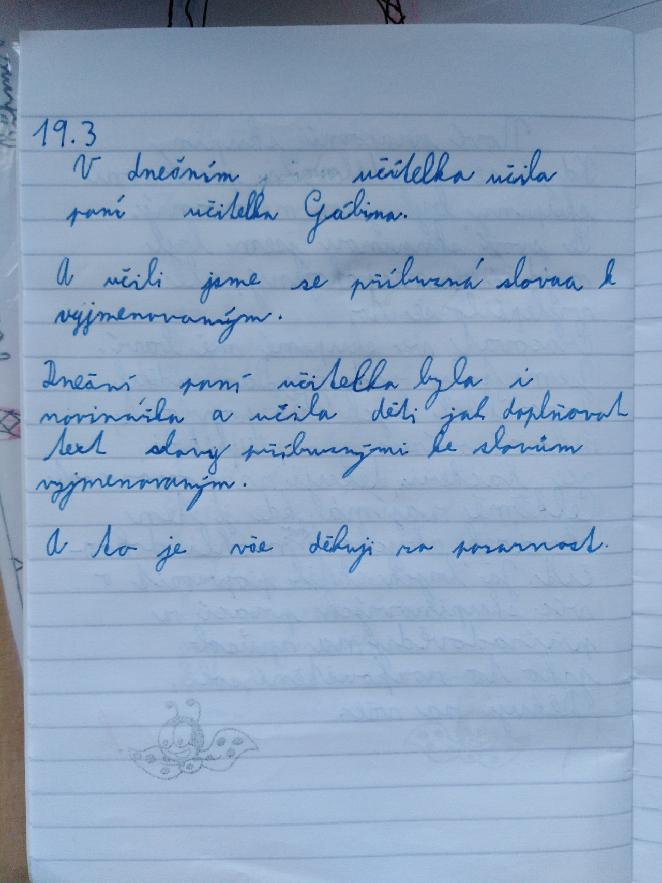 19.3
V dnešním i učitelka učila
paní učitelka Gábina.
A učili jsme se příbuzná slovaa k
vyjmenovaným.
Dnešní paní učitelka byla i
novinářka a učila děti jak doplňovat
text slovy příbuznými ke slovům
vyjmenovaným.
A to je vše děkuji za pozarnost.